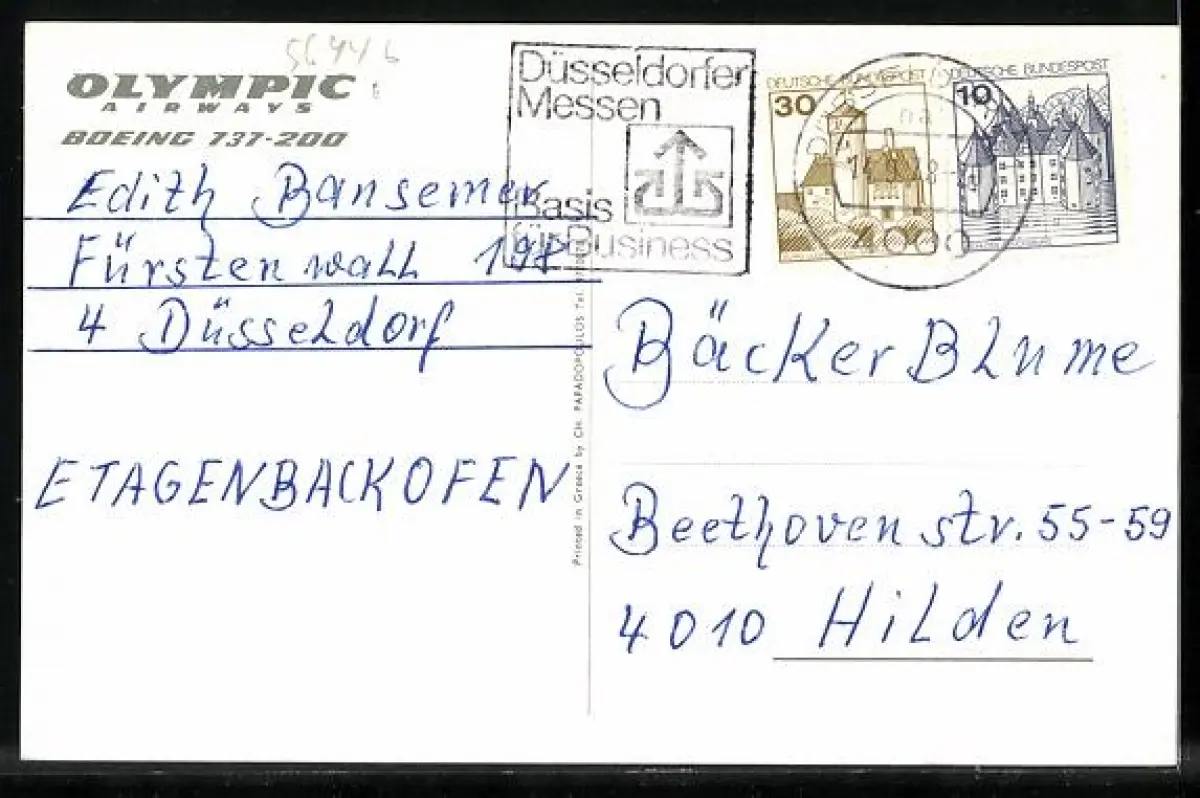 5644 b
OLYMPIC
AIRWAYS
BOEING 737-200
Edith Bansemer
Fürstenwall 198
4 Düsseldorf
ETAGENBACKOFEN
Printed in Greece by CH. PAPADOPOULOS Tel.
Düsseldorfer
Messen
Basis
für Business
DEUTSCHE BUNDESPOST
30
DEUTSCHE BUNDESPOST
10
4000
BäckerBlume
Beethovenstr. 55-59
4010 Hilden